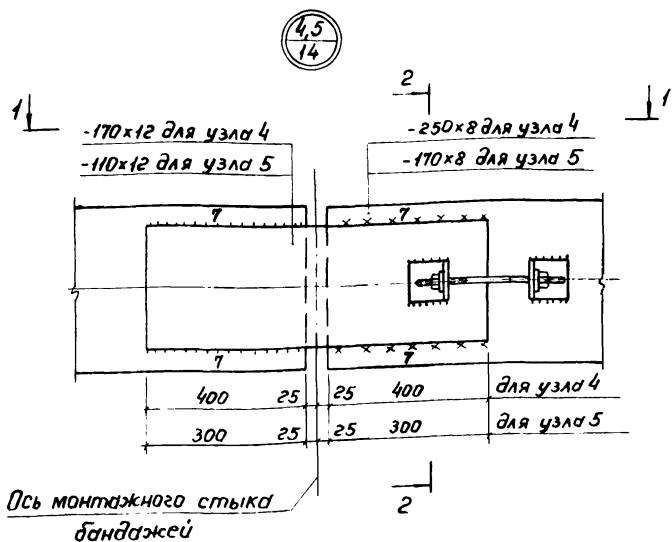 4,5
14
2
1
1
-170×12 для узла 4
-250×8 для узла 4
-110×12 для узла 5
-170×8 для узла 5
7
7
7
7
400 25 25 400 для узла 4
300 25 25 300 для узла 5
2
Ось монтажного стыка
бандажей